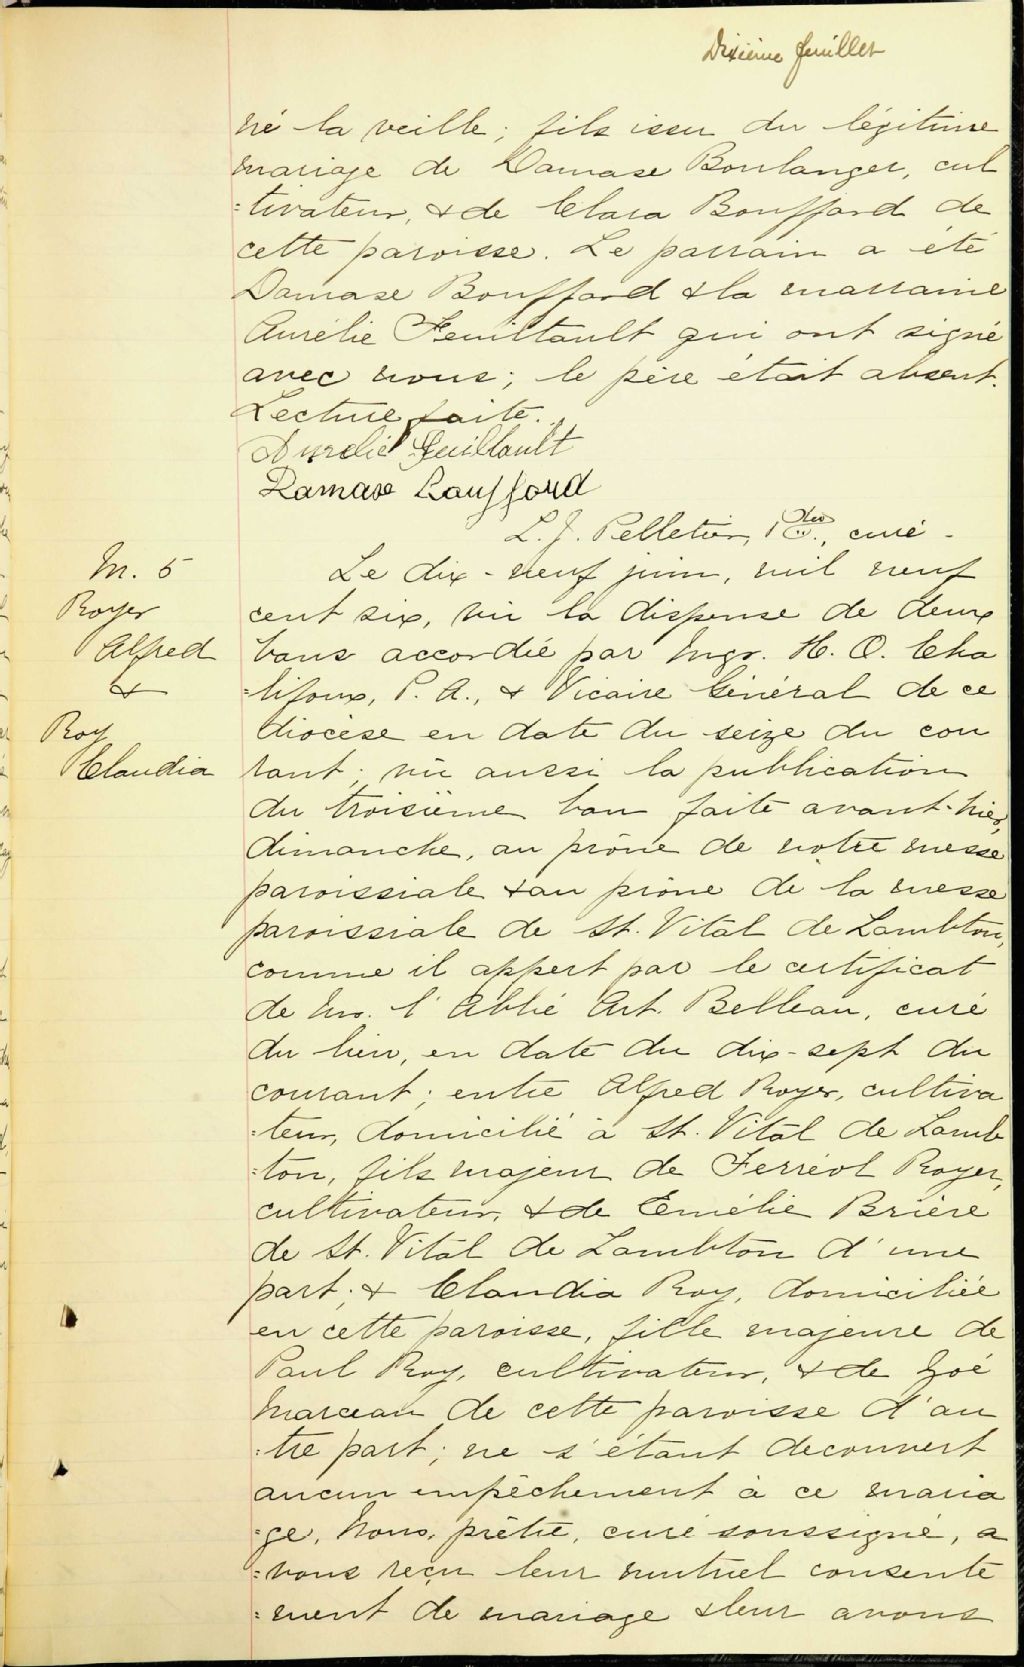 Dixième feuillet
né la veille; fils issu du légitime
mariage de Damase Boulanger, cul
=tivateur, & de Clara Bouffard de
cette paroisse. Le parrain a été
Damase Bouffard & la marraine
Aurélie Feuiltault qui ont signé
avec nous; le père était absent.
Lecture faite.
Aurelie Feuiltault
Damase Bouffard
L. J. Pelletier, Ptre, curé -
M. 5
Royer
Alfred
&
Roy
Claudia
Le dix-neuf juin, mil neuf
cent six, vu la dispense de deux
bans accordée par Mgr. H. O. Cha
=lifoux, P. A., & Vicaire Général de ce
diocèse en date du seize du cou
rant; vû aussi la publication
du troisième ban faite avant-hier,
dimanche, au prône de notre messe
paroissiale & au prône de la messe
paroissiale de St. Vital de Lambton,
comme il appert par le certificat
de Mr. l'Abbé Art. Belleau, curé
du lieu, en date du dix-sept du
courant; entre Alfred Royer, cultiva
=teur, domicilié à St. Vital de Lamb
=ton, fils majeur de Ferréol Royer,
cultivateur, & de Emélie Brière
de St. Vital de Lambton d'une
part; & Claudia Roy, domiciliée
en cette paroisse, fille majeure de
Paul Roy, cultivateur, & de Zoé
Marceau de cette paroisse d'au
=tre part; ne s'étant decouvert
aucun empêchement à ce maria
=ge, Nous, prêtre, curé soussigné, a
=vons reçu leur mutuel consente
=ment de mariage & leur avons